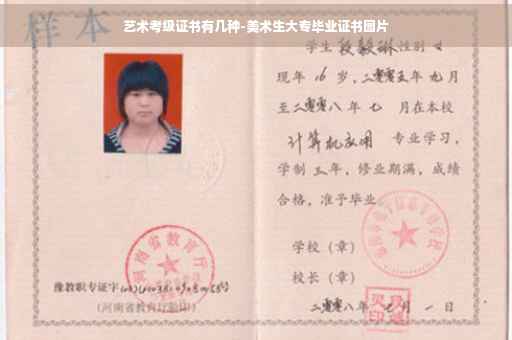 艺术考级证书有几种-美术生大专毕业证书图片
样本
学生 段毅琳 性别 女
现年 16 岁，二零零五年 九 月
至二零零八年 七 月在本校
计算机应用 专业学习，
学制 三 年，修业期满，成绩
合格，准予毕业
学校（章）
校长（章）
二零零八年 七 月 一 日
河南省教育厅
豫教职专证字
(河南省教育厅验印)